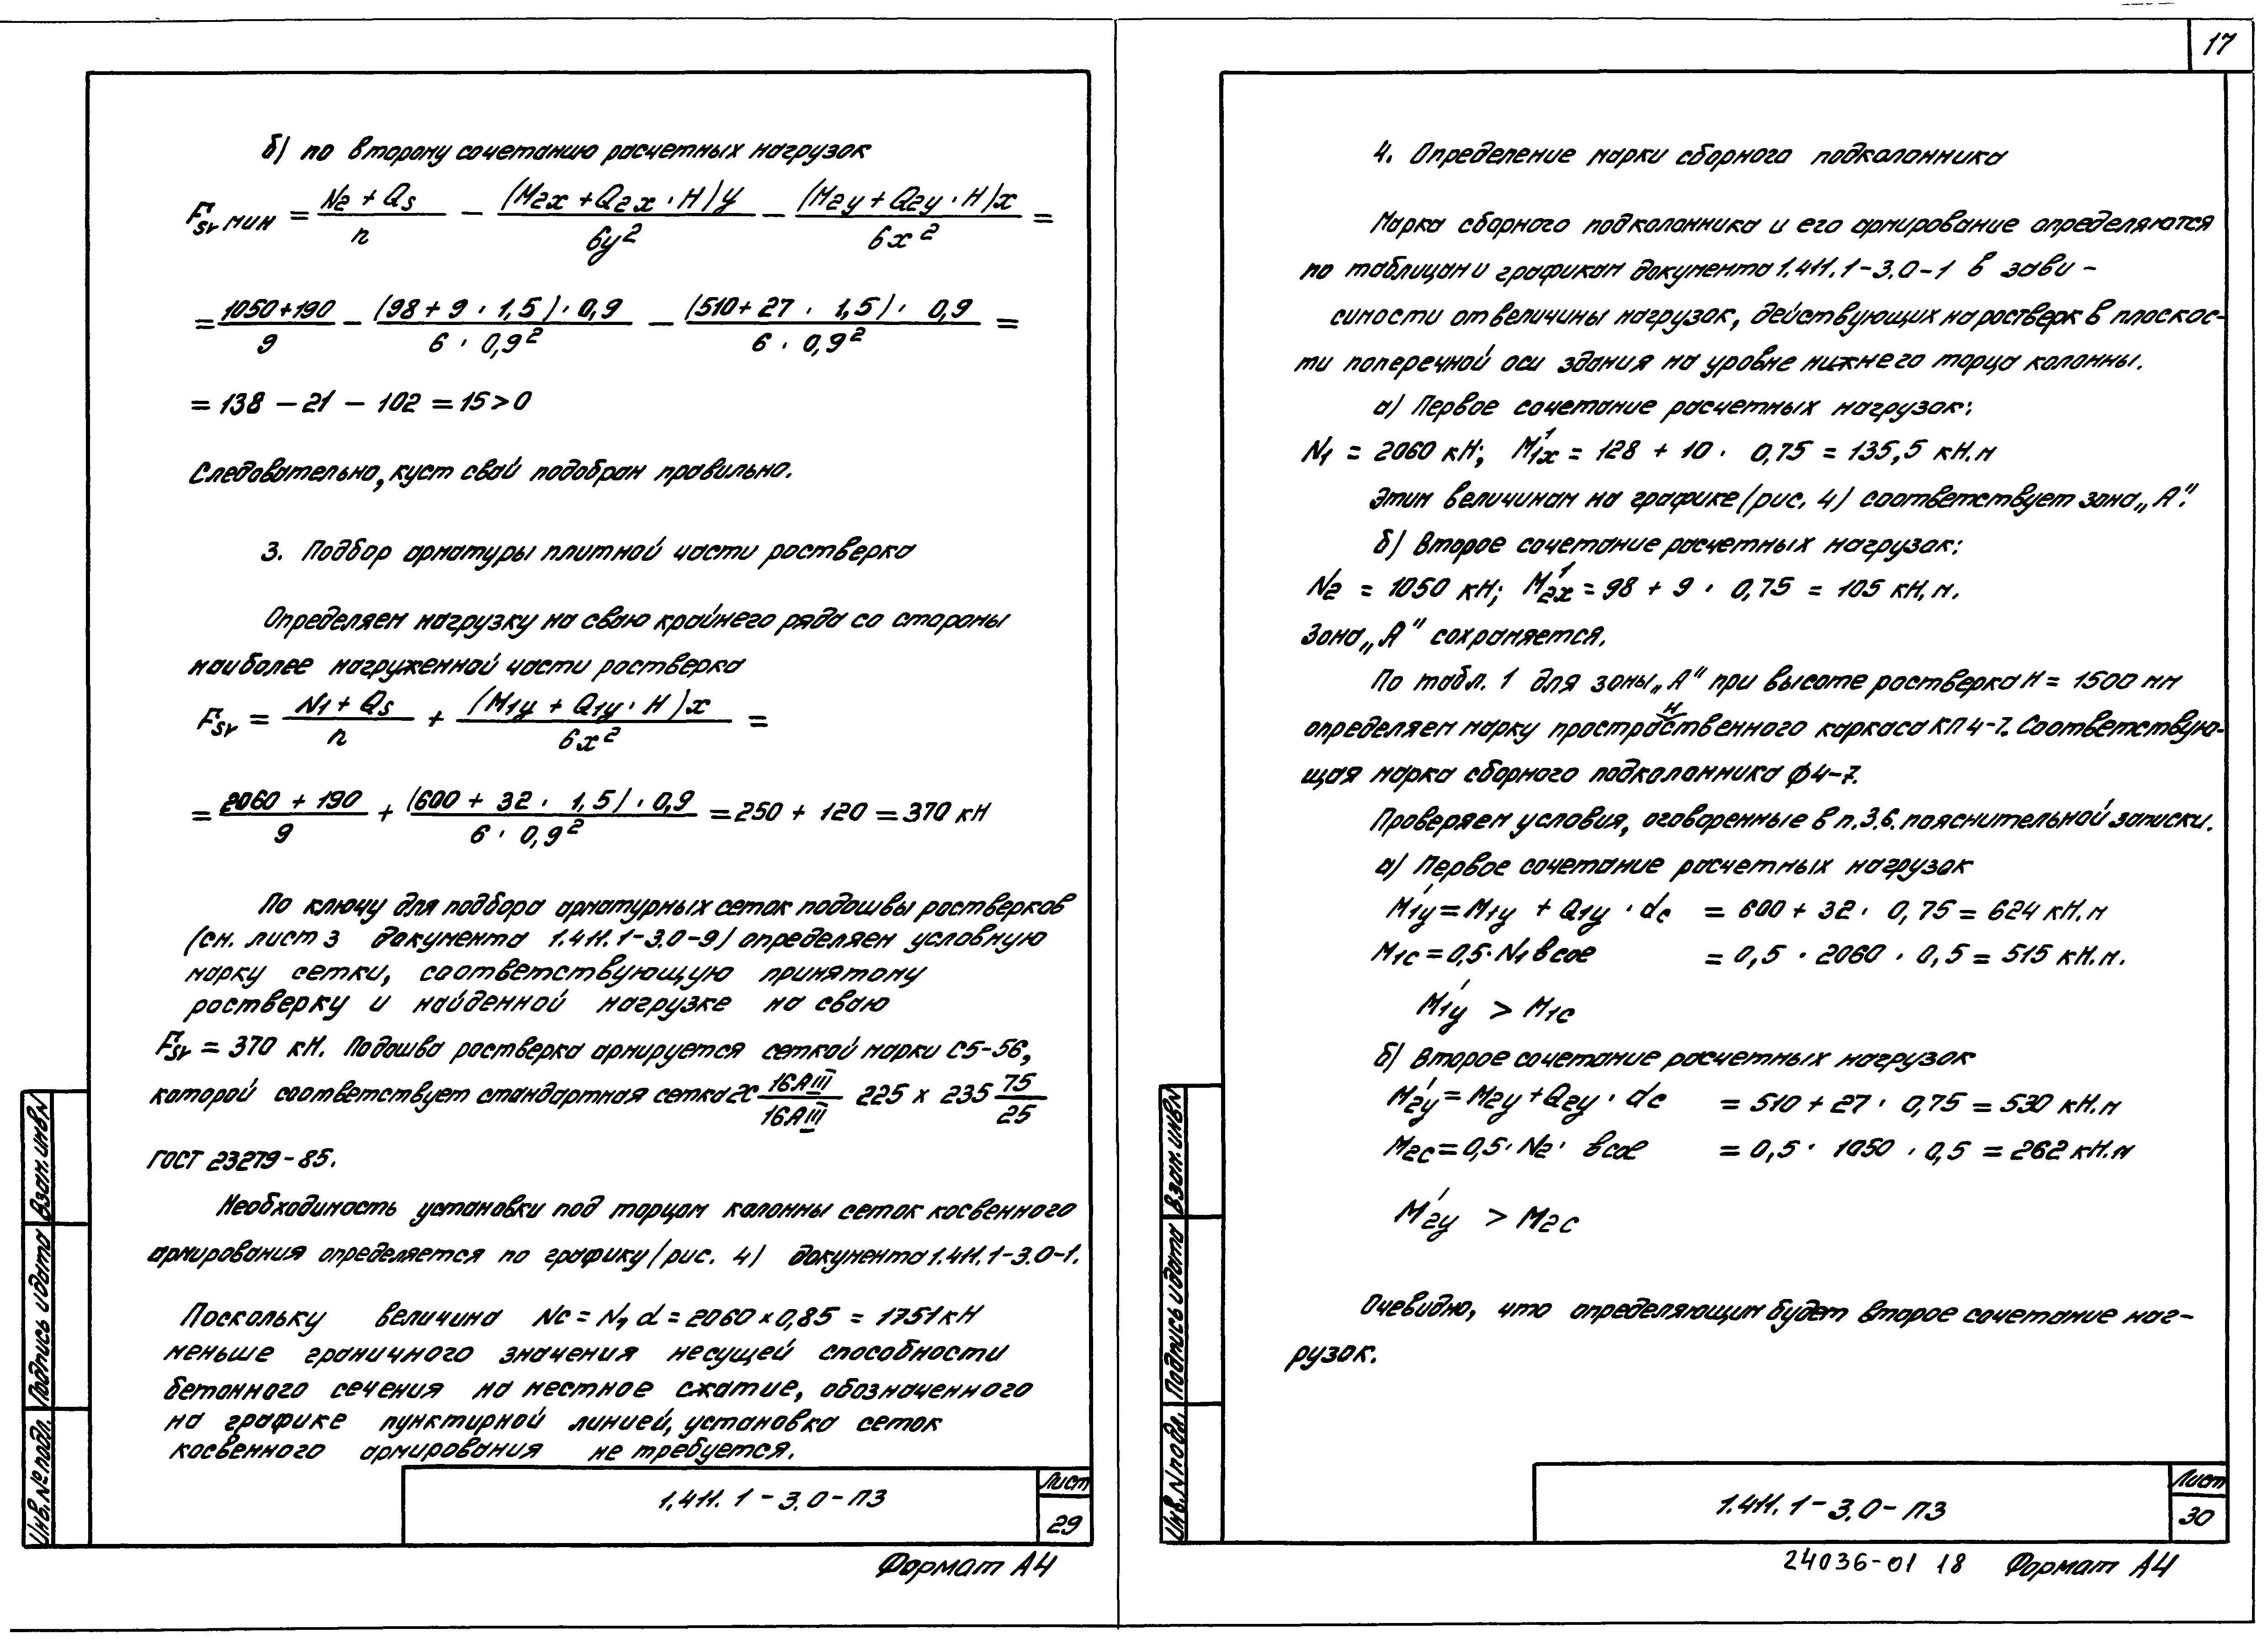 17
б) по второму сочетанию расчетных нагрузок
Fsr мин = (N2 + Qs)/n − ((M2x + Q2x · H)y)/(6y²) − ((M2y + Q2y · H)x)/(6x²) =
= (1050+190)/9 − ((98 + 9 · 1,5) · 0,9)/(6 · 0,9²) − ((510 + 27 · 1,5) · 0,9)/(6 · 0,9²) =
= 138 − 21 − 102 = 15 > 0
Следовательно, куст свай подобран правильно.
3. Подбор арматуры плитной части ростверка
Определяем нагрузку на сваю крайнего ряда со стороны
наиболее нагруженной части ростверка
Fsr = (N1 + Qs)/n + ((M1y + Q1y · H)x)/(6x²) =
= (2060 + 190)/9 + ((600 + 32 · 1,5) · 0,9)/(6 · 0,9²) = 250 + 120 = 370 кН
По ключу для подбора арматурных сеток подошвы ростверков
(см. лист 3 документа 1.411.1-3.0-9) определяем условную
марку сетки, соответствующую принятому
ростверку и найденной нагрузке на сваю
Fsr = 370 кН. Подошва ростверка армируется сеткой марки С5-56,
которой соответствует стандартная сетка 2С 16АIII/16АIII 225 х 235 75/25
ГОСТ 23279-85.
Необходимость установки под торцом колонны сеток косвенного
армирования определяется по графику (рис. 4) документа 1.411.1-3.0-1.
Поскольку величина Nc = N1 α = 2060 х 0,85 = 1751 кН
меньше граничного значения несущей способности
бетонного сечения на местное сжатие, обозначенного
на графике пунктирной линией, установка сеток
косвенного армирования не требуется.
Инв. № подл. Подпись и дата Взам. инв N
1.411.1-3.0-ПЗ
Лист
29
Формат А4
4. Определение марки сборного подколонника
Марка сборного подколонника и его армирование определяются
по таблицам и графикам документа 1.411.1-3.0-1 в зави-
симости от величины нагрузок, действующих на ростверк в плоскос-
ти поперечной оси здания на уровне нижнего торца колонны.
а) Первое сочетание расчетных нагрузок:
N1 = 2060 кН; M'1x = 128 + 10 · 0,75 = 135,5 кН.м
Этим величинам на графике (рис. 4) соответствует зона „А".
б) Второе сочетание расчетных нагрузок:
N2 = 1050 кН; M'2x = 98 + 9 · 0,75 = 105 кН.м.
Зона „А" сохраняется.
По табл. 1 для зоны „А" при высоте ростверка Н = 1500 мм
определяем марку пространственного каркаса КП 4-7. Соответствую-
щая марка сборного подколонника Ф4-7.
Проверяем условия, оговоренные в п. 3.6. пояснительной записки.
а) Первое сочетание расчетных нагрузок
M'1y = M1y + Q1y · dc = 600 + 32 · 0,75 = 624 кН.м
M1c = 0,5 · N1 bcol = 0,5 · 2060 · 0,5 = 515 кН.м.
M'1y > M1c
б) Второе сочетание расчетных нагрузок
M'2y = M2y + Q2y · dc = 510 + 27 · 0,75 = 530 кН.м
M2c = 0,5 · N2 · bcol = 0,5 · 1050 · 0,5 = 262 кН.м
M'2y > M2c
Очевидно, что определяющим будет второе сочетание наг-
рузок.
Инв. N подл. Подпись и дата Взам. инв N
1.411.1-3.0-ПЗ
Лист
30
24036-01 18 Формат А4